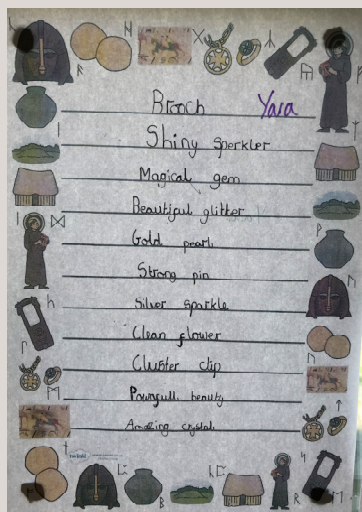 Brooch Yara
Shiny sperkler
Magical gem
Beautiful glitter
Gold pearl
Strong pin
Silver sparkle
Clean flower
Cluster clip
Powrfull beauty
Amazing crystal
twinkl